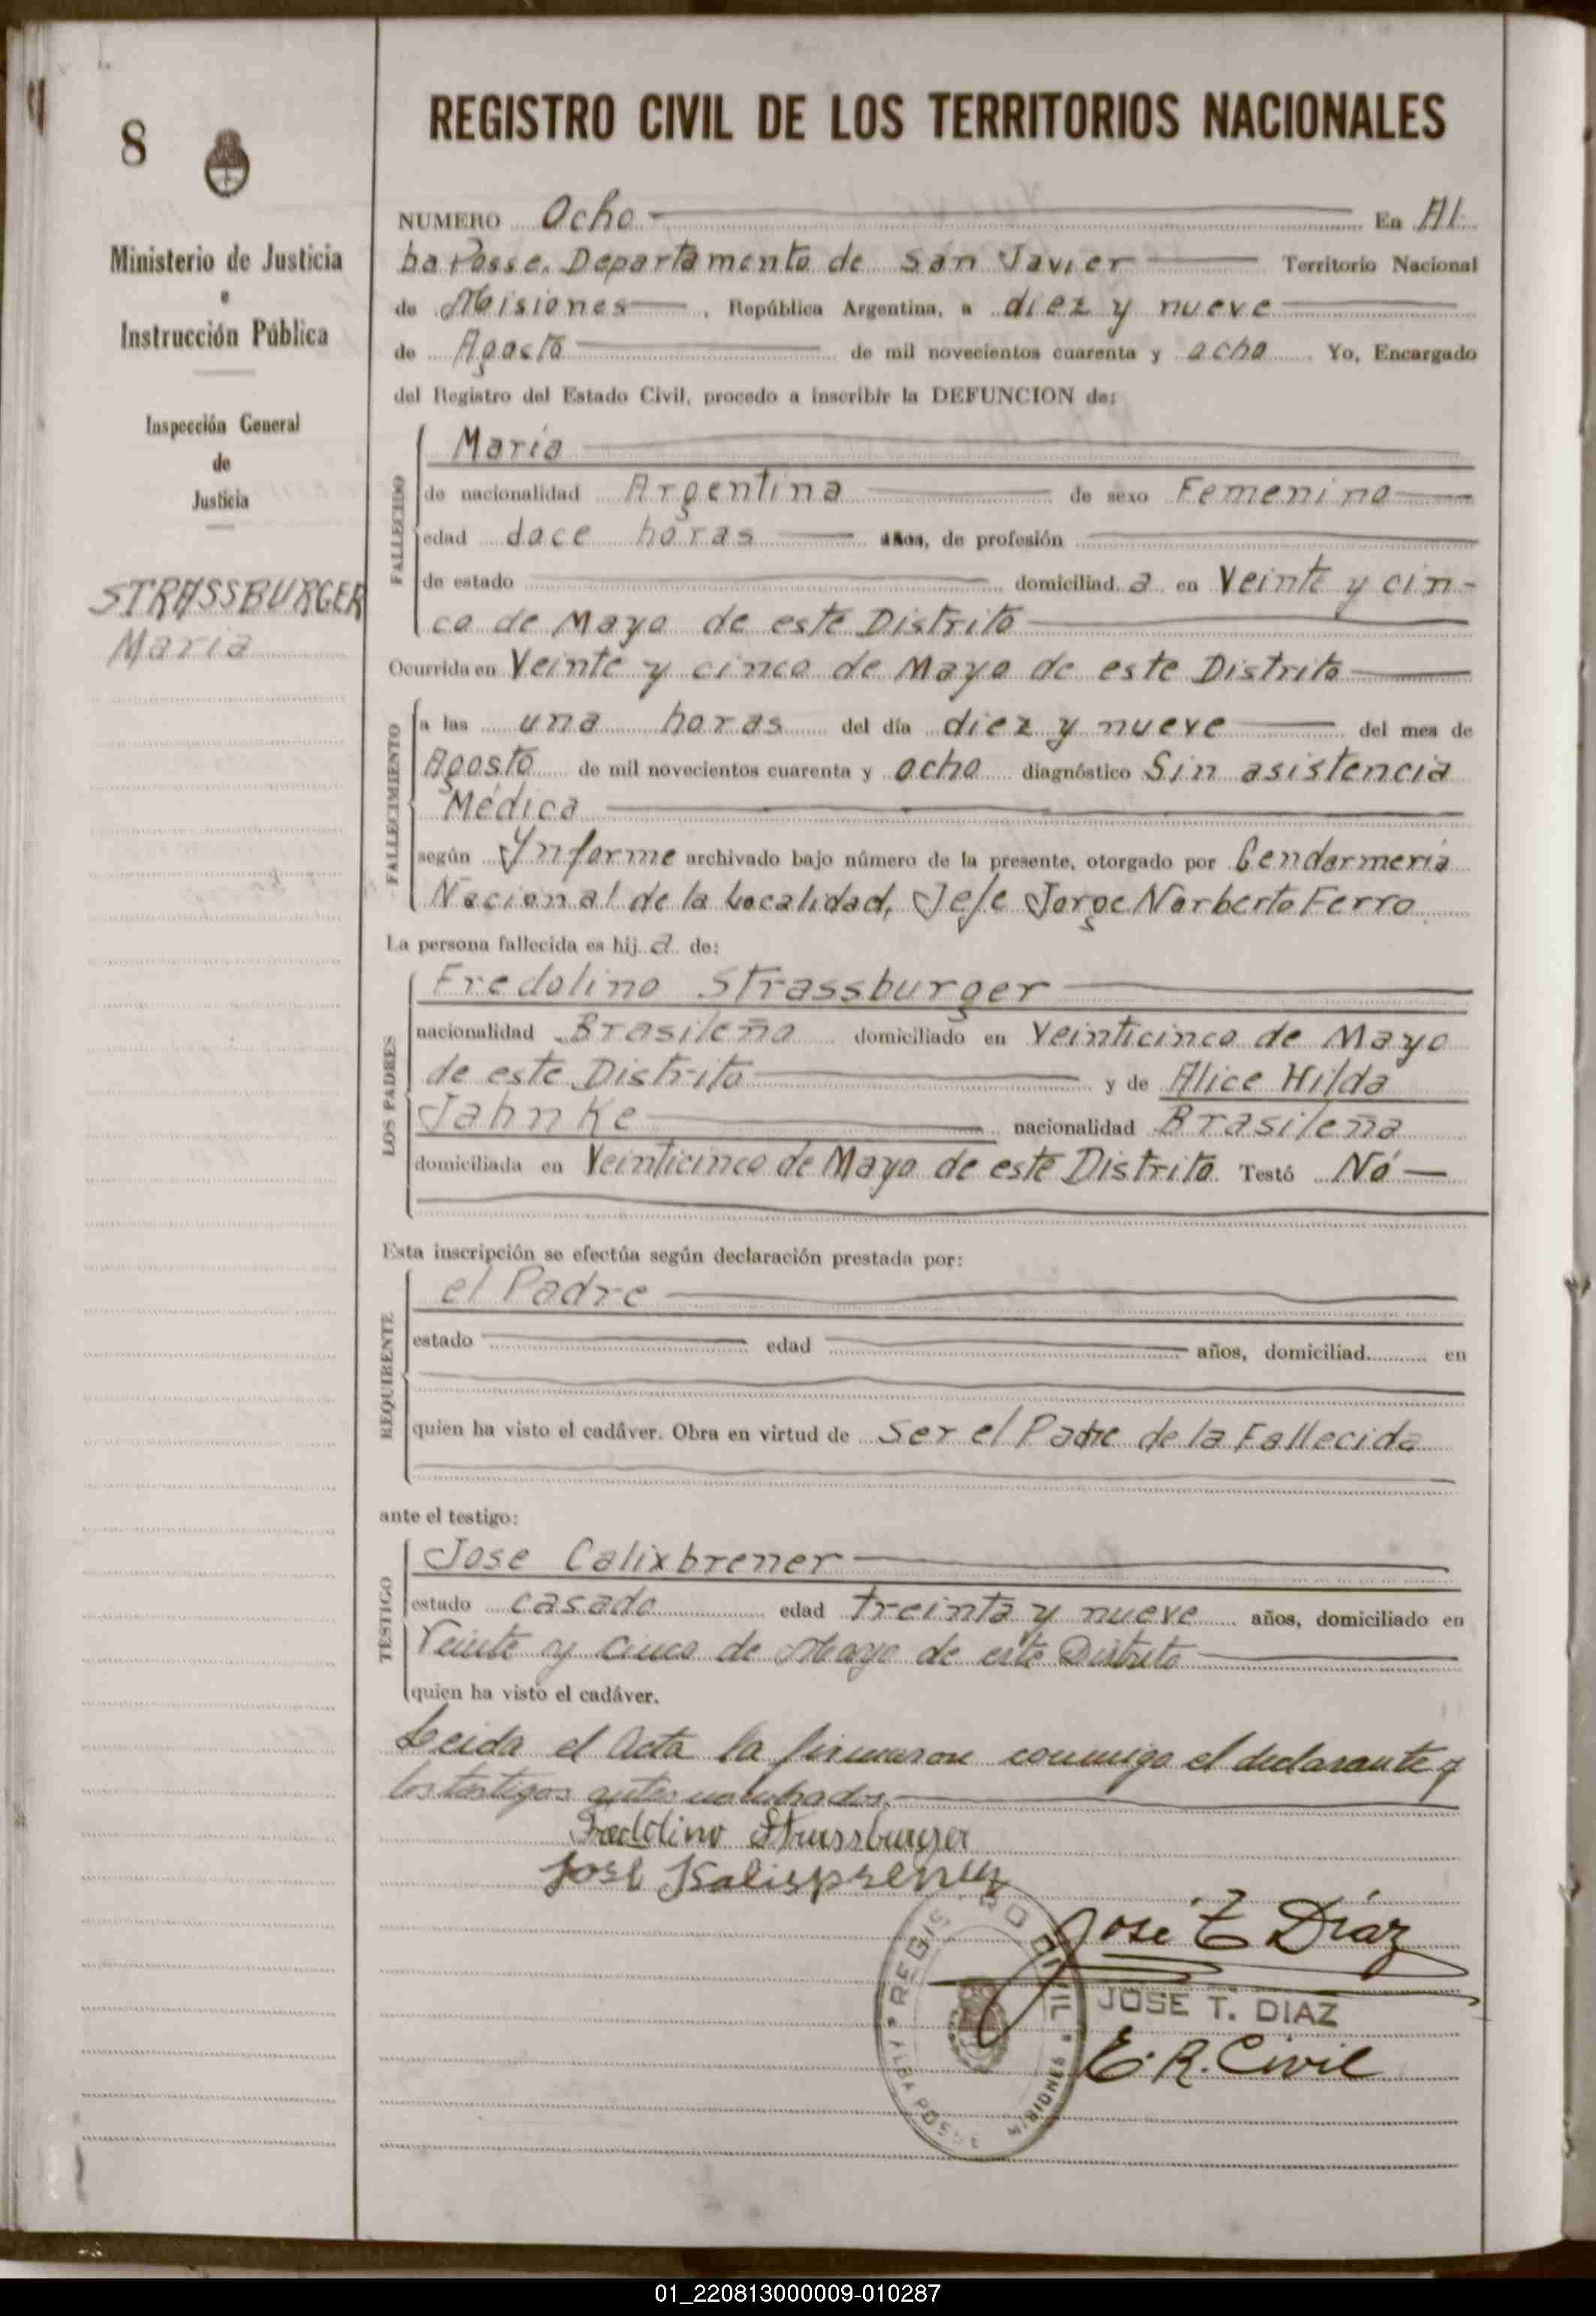 8
Ministerio de Justicia
e
Instrucción Pública
Inspección General
de
Justicia
STRASSBURGER
Maria
REGISTRO CIVIL DE LOS TERRITORIOS NACIONALES
NUMERO Ocho En Al
ba Posse. Departamento de San Javier Territorio Nacional
de Misiones, República Argentina, a diez y nueve
de Agosto de mil novecientos cuarenta y ocho Yo, Encargado
del Registro del Estado Civil, procedo a inscribir la DEFUNCION de:
FALLECIDO
Maria
de nacionalidad Argentina de sexo Femenino
edad doce horas años, de profesión
de estado domiciliad a en Veinte y cin-
co de Mayo de este Distrito
Ocurrida en Veinte y cinco de Mayo de este Distrito
FALLECIMIENTO
a las una horas del día diez y nueve del mes de
Agosto de mil novecientos cuarenta y ocho diagnóstico Sin asistencia
Médica
según Ynforme archivado bajo número de la presente, otorgado por Gendarmeria
Nacional de la Localidad, Jefe Jorge Norberto Ferro
La persona fallecida es hij a de:
LOS PADRES
Fredolino Strassburger
nacionalidad Brasileña domiciliado en Veinticinco de Mayo
de este Distrito y de Alice Hilda
Jahnke nacionalidad Brasileña
domiciliada en Veinticinco de Mayo de este Distrito. Testó Nó
Esta inscripción se efectúa según declaración prestada por:
REQUIRENTE
el Padre
estado edad años, domiciliad en
quien ha visto el cadáver. Obra en virtud de Ser el Padre de la Fallecida
ante el testigo:
TESTIGO
Jose Calixbrener
estado casado edad treinta y nueve años, domiciliado en
Veinte y cinco de Mayo de este Distrito
quien ha visto el cadáver.
Leida el Acta la firmaron conmigo el declarante y
los testigos antes nombrados.
Fredolino Strassburger
José Kalisprener
José T Díaz
JOSE T. DIAZ
E. R. Civil
REGISTRO CIVIL
ALBA POSSE MISIONES
01_220813000009-010287